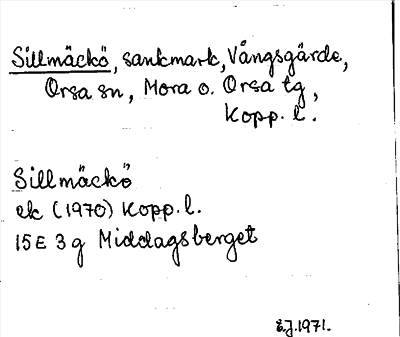 Sillmäckö, sankmark, Vångsgärde,
Orsa sn, Mora o. Orsa tg,
Kopp. l.
Sillmäckö
ek (1970) Kopp. l.
15E 3g Middagsberget
E.J. 1971.